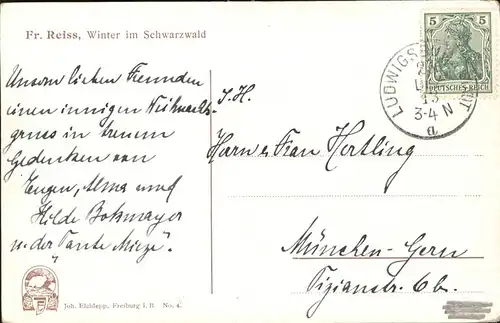 Fr. Reiss, Winter im Schwarzwald
Unsern lieben Freunden
einen innigen Weihnachts-
gruss in treuem
Gedenken von
Eugen, Alma und
Hilde Bokmayer
u. der "Tante Mieze".
S. H.
Herrn & Frau Hertling
München-Gern
Tizianstr. 6 b.
5 5
DEUTSCHES REICH
LUDWIGS
13
3-4 N
a
Joh. Elchlepp, Freiburg i. B. No. 4.